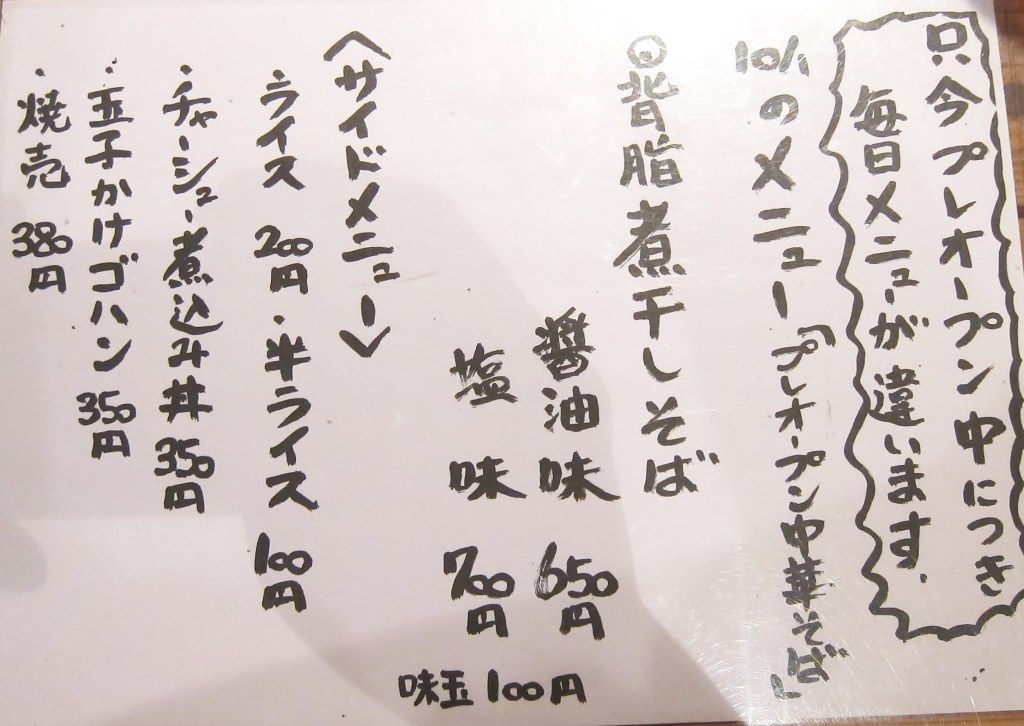 只今プレオープン中につき
毎日メニューが違います.
10/1のメニュー「プレオープン中華そば」
◎背脂煮干しそば
醤油味 650円
塩味 700円
味玉 100円
〈サイドメニュー〉
・ライス 200円・半ライス 100円
・チャーシュー煮込み丼 350円
・玉子かけゴハン 350円
・焼売 380円